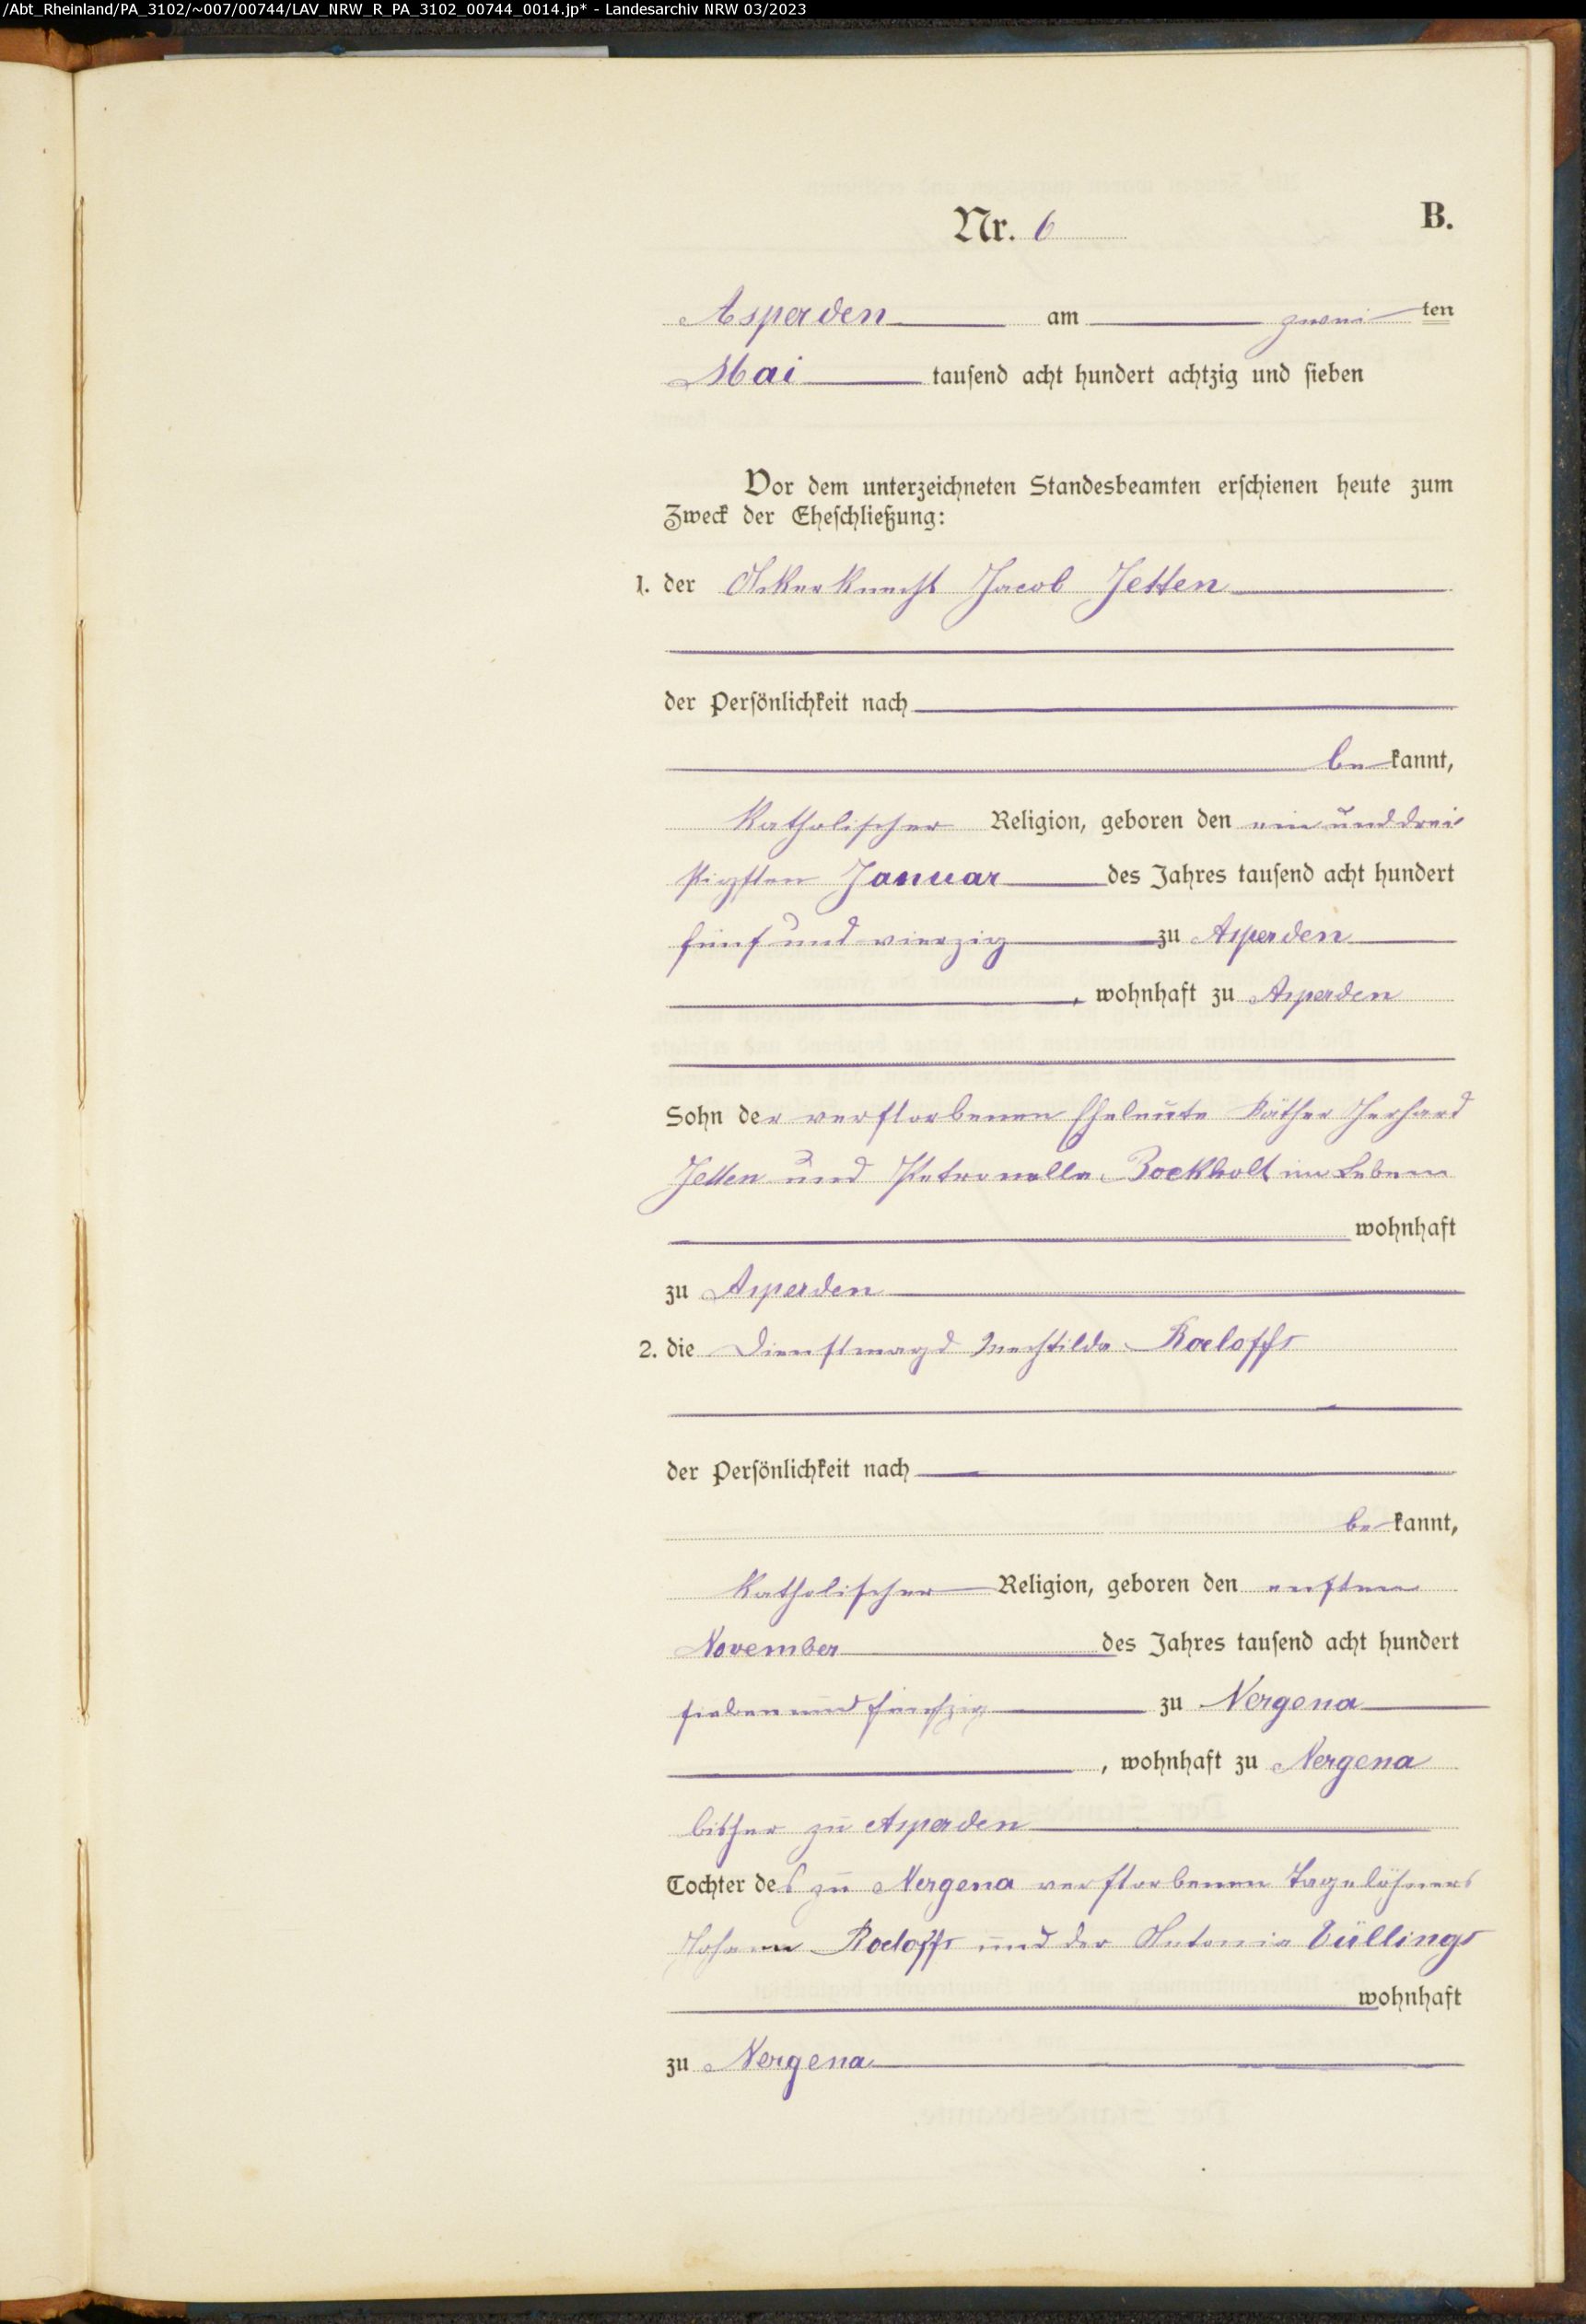 /Abt_Rheinland/PA_3102/~007/00744/LAV_NRW_R_PA_3102_00744_0014.jp* - Landesarchiv NRW 03/2023
Nr. 6
B.
Asperden am zwei ten
Mai tausend acht hundert achtzig und sieben
Vor dem unterzeichneten Standesbeamten erschienen heute zum
Zweck der Eheschließung:
1. der Ackerknecht Jacob Jetten
der Persönlichkeit nach
be kannt,
katholischer Religion, geboren den ein und drei
ßigsten Januar des Jahres tausend acht hundert
fünf und vierzig zu Asperden
, wohnhaft zu Asperden
Sohn der verstorbenen Eheleute Käther Gerhard
Jetten und Petronella Bockholt im Leben
wohnhaft
zu Asperden
2. die Dienstmagd Mechtilda Roeloffs
der Persönlichkeit nach
be kannt,
katholischer Religion, geboren den ersten
November des Jahres tausend acht hundert
sieben und fünfzig zu Nergena
, wohnhaft zu Nergena
bisher zu Asperden
Tochter des zu Nergena verstorbenen Tagelöhners
Johann Roeloffs und der Antonia Vüllings
wohnhaft
zu Nergena